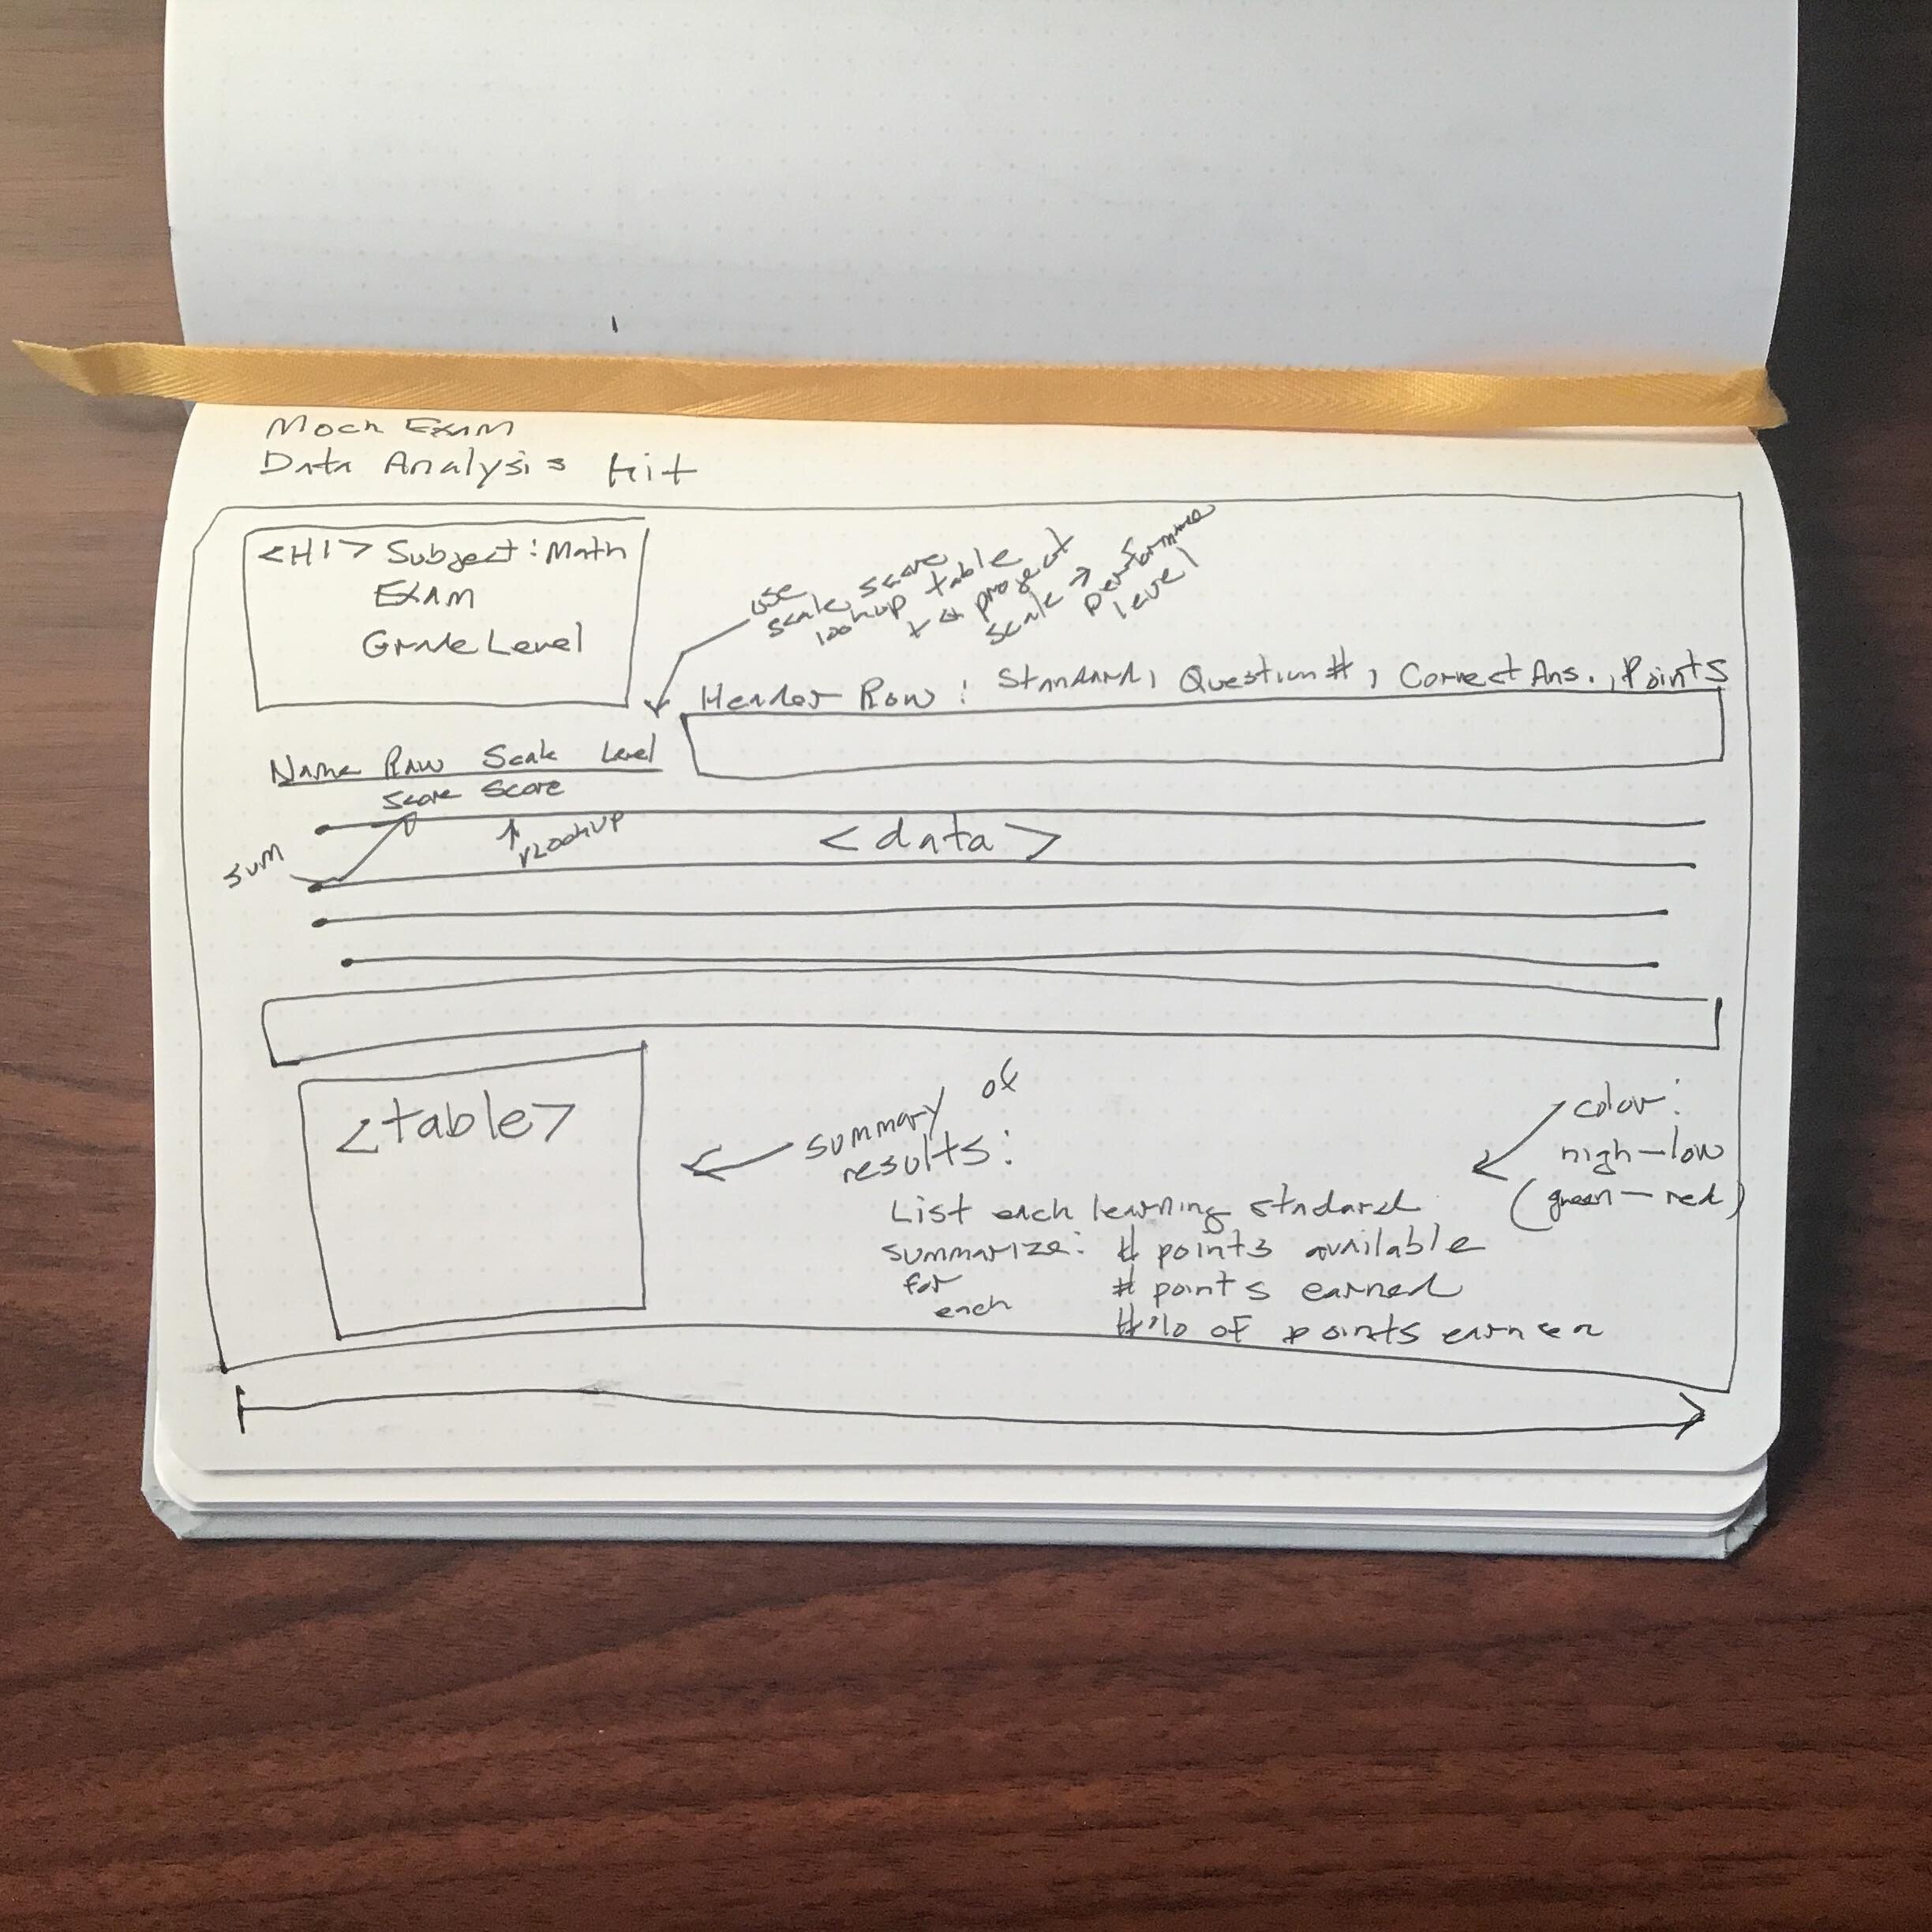 Mock Exam
Data Analysis Kit
<H1> Subject: Math
Exam
Grade Level
use
scale score
lookup table
to project
scale → performance
level
Header Row: Standard, Question #, Correct Ans., Points
Name Raw Scale Level
Score Score
sum
VLOOKUP
<data>
<table>
summary of
results:
List each learning stndard
summarize: # points available
for # points earned
each #% of points earned
color:
high-low
(green-red)